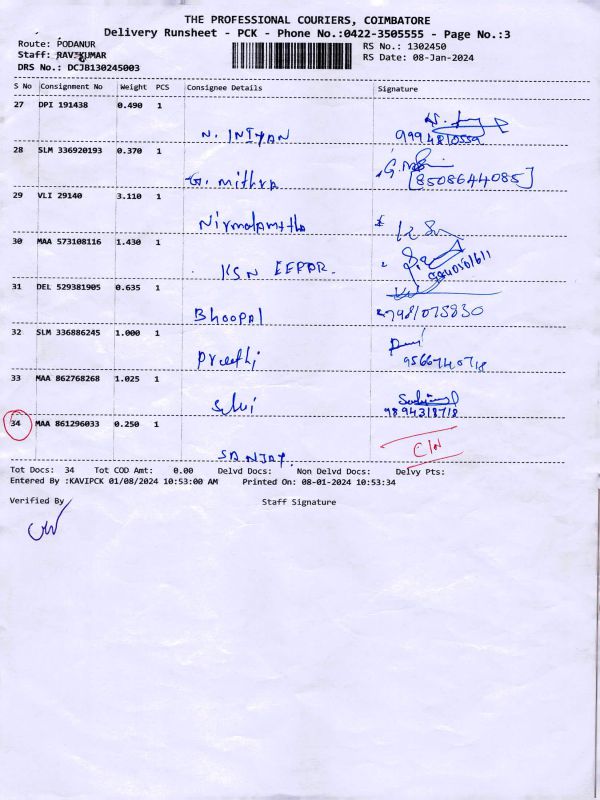 THE PROFESSIONAL COURIERS, COIMBATORE
Delivery Runsheet - PCK - Phone No.:0422-3505555 - Page No.:3
Route: PODANUR
RS No.: 1302450
Staff: RAVIKUMAR
RS Date: 08-Jan-2024
DRS No.: DCJB130245003
S No Consignment No Weight PCS Consignee Details Signature
27 DPI 191438 0.490 1
N. INIYAN 9994810559
28 SLM 336920193 0.370 1
G. Mithra [8508644085]
29 VLI 29140 3.110 1
Nirmalamatha
30 MAA 573108116 1.430 1
KSN
31 DEL 529381905 0.635 1
Bhoopal 7981075830
32 SLM 336886245 1.000 1
Preethi 9566740718
33 MAA 862768268 1.025 1
Selvi 9894318718
34 MAA 861296033 0.250 1
SANJAY. C/N
Tot Docs: 34 Tot COD Amt: 0.00 Delvd Docs: Non Delvd Docs: Delvy Pts:
Entered By :KAVIPCK 01/08/2024 10:53:00 AM Printed On: 08-01-2024 10:53:34
Verified By Staff Signature